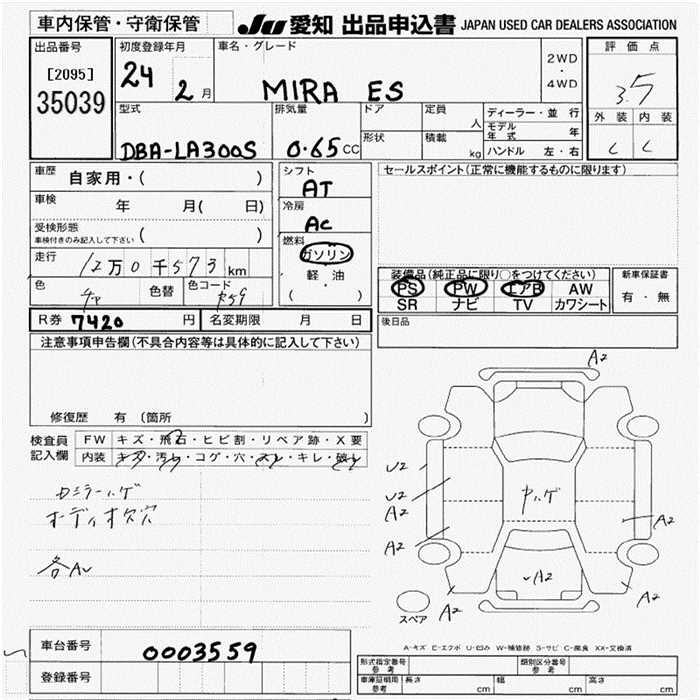 車内保管・守衛保管
JU 愛知 出品申込書 JAPAN USED CAR DEALERS ASSOCIATION
出品番号
[2095]
35039
初度登録年月
24 2月
車名・グレード
MIRA ES
2WD
・
4WD
評価点
3.5
外装 内装
C C
型式
DBA-LA300S
排気量
0.65CC
ドア
形状
定員
人
積載
kg
ディーラー・並行
モデル年式 年
ハンドル 左・右
車歴 自家用・( )
車検 年 月( 日)
受検形態
車検付きのみ記入して下さい ( )
走行 12万0千573km
色
色替
色コード
R59
シフト
AT
冷房
AC
燃料
ガソリン
軽油
( )
セールスポイント(正常に機能するものに限ります)
装備品(純正品に限り○をつけてください)
PS PW エアB AW
SR ナビ TV カワシート
新車保証書
有・無
R券 7420円
名変期限 月 日
後日品
注意事項申告欄(不具合内容等は具体的に記入して下さい)
修復歴 有 (箇所 )
検査員記入欄
FW キズ・飛石・ヒビ割・リペア跡・X要
内装 キズ・汚れ・コゲ・穴・スレ・キレ・破レ
カミラーハゲ
オーディオ欠穴
各AU
A2
U2
U2
A2
A2
ヤハゲ
A2
A2
A2
A2
スペア
A-キズ E-エクボ U-凹み W-補修跡 S-サビ C-腐食 XX-交換済
車台番号 0003559
登録番号
型式指定番号
参考
類別区分番号
参考
車庫証明用
参考
長さ cm
幅 cm
高さ cm